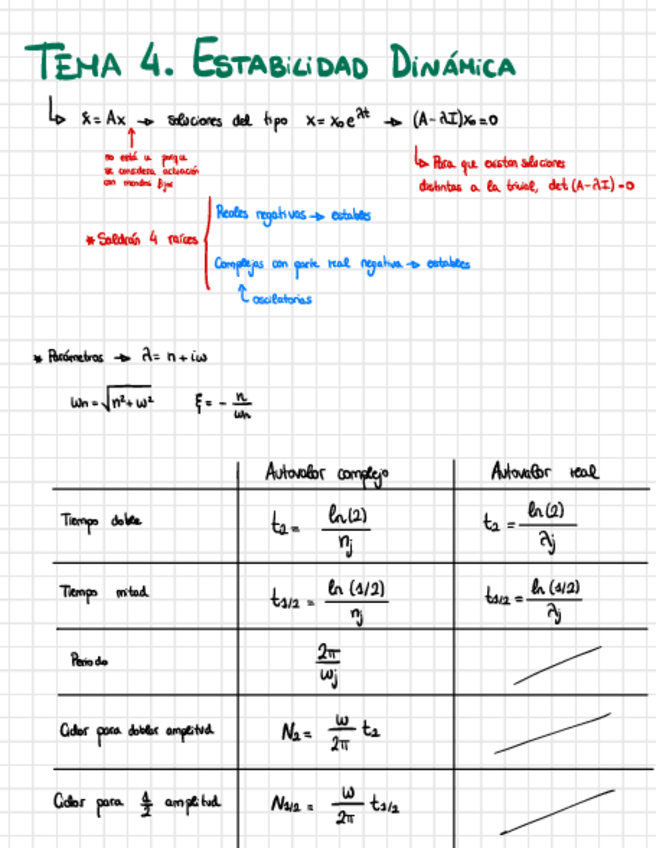 TEMA 4. ESTABILIDAD DINÁMICA
ẋ = Ax → soluciones del tipo x = x₀e^λt → (A-λI)x₀=0
no está u porque
se considera actuación
con mandos fijos
Para que existan soluciones
distintas a la trivial, det(A-λI)=0
* Saldrán 4 raíces
Reales negativas → estables
Complejas con parte real negativa → estables
oscilatorias
* Parámetros → λ = n + iω
ωn = √(n²+ω²) ξ = - n/ωn
Autovalor complejo Autovalor real
Tiempo doble t₂ = ln(2)/nj t₂ = ln(2)/λj
Tiempo mitad t₁/₂ = ln(1/2)/nj t₁/₂ = ln(1/2)/λj
Periodo 2π/ωj
Ciclos para doblar amplitud N₂ = ω/2π t₂
Ciclos para 1/2 amplitud N₁/₂ = ω/2π t₁/₂